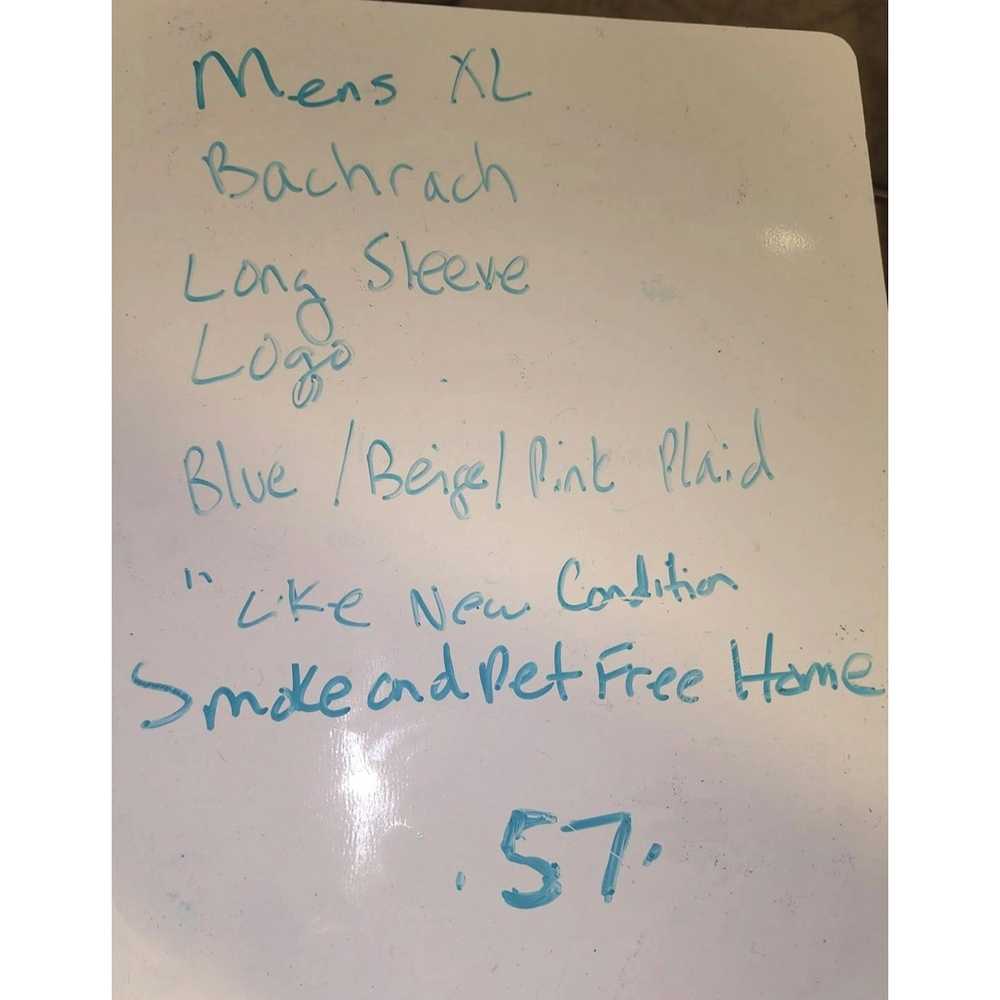 Mens XL
Bachrach
Long Sleeve
Logo
Blue / Beige / Pink Plaid
" Like New Condition
Smoke and Pet Free Home
. 57.